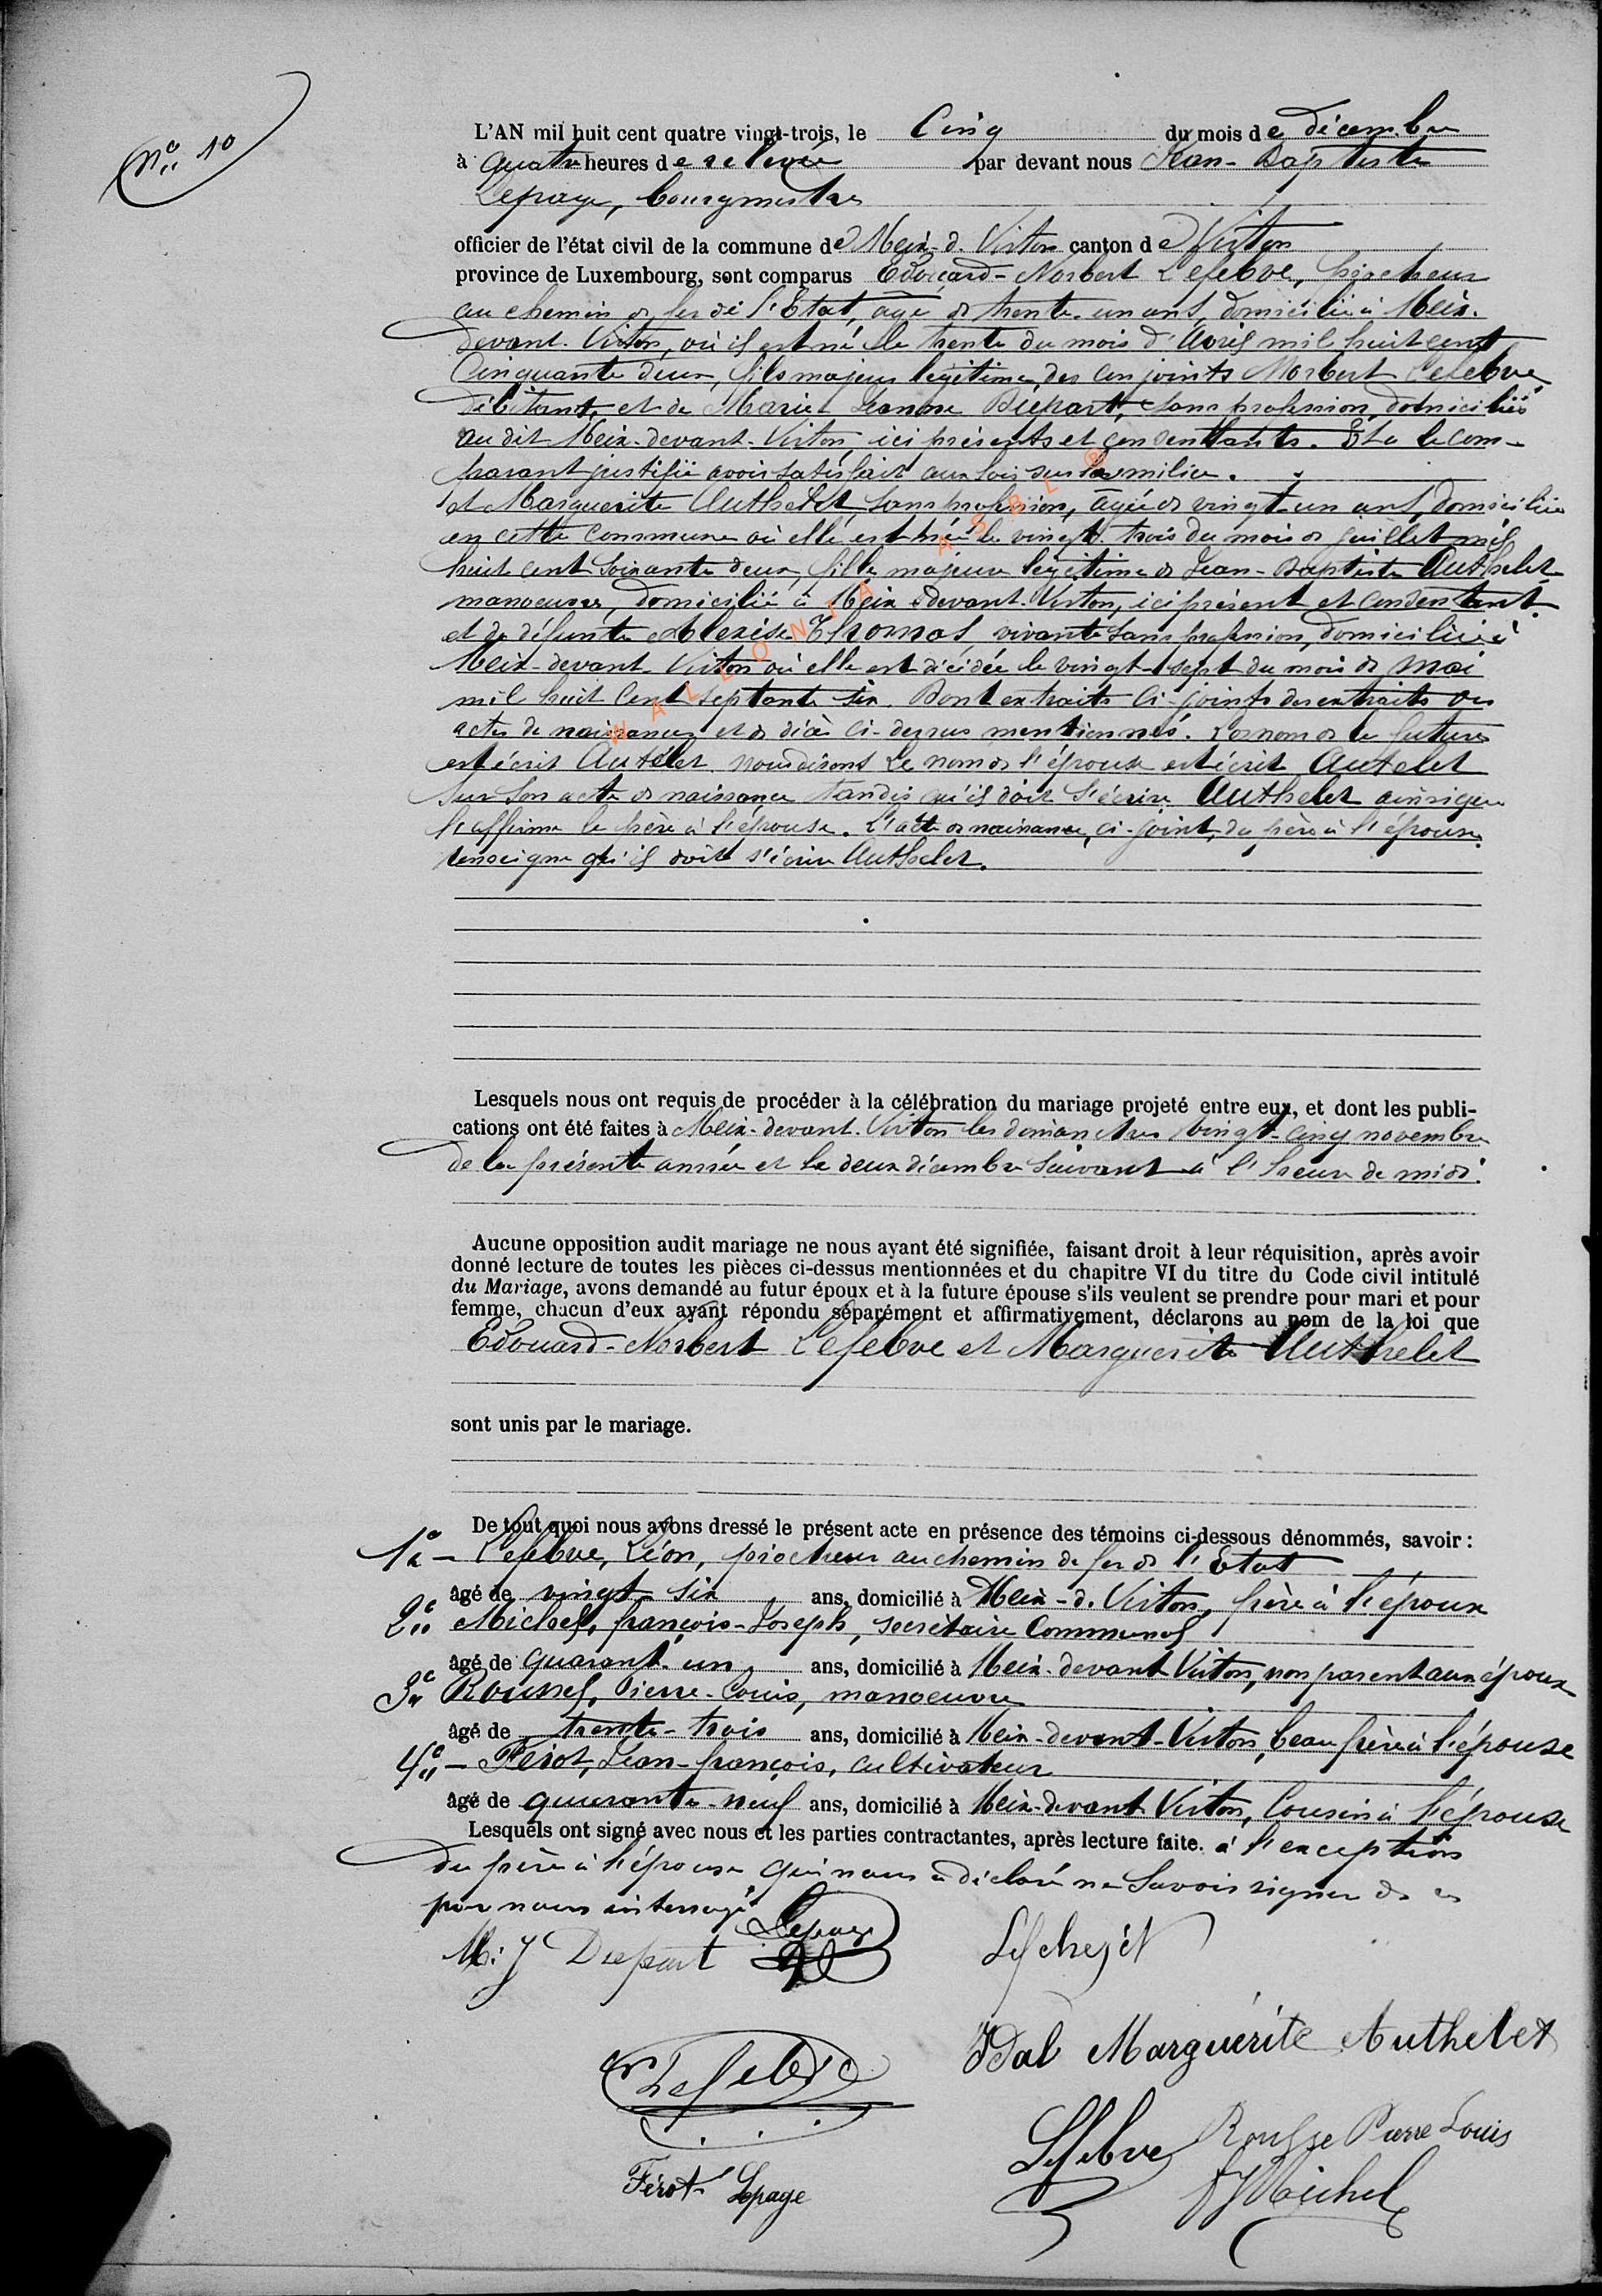 N° 10
L'AN mil huit cent quatre vingt-trois, le Cinq du mois de décembre
à quatre heures de relevée par devant nous Jean-Baptiste
Lepage, bourgmestre
officier de l'état civil de la commune de Meix-d. Virton canton de Virton
province de Luxembourg, sont comparus Edouard-Norbert Lefebve, piocheur
au chemin de fer de l'Etat, agé de trente-un ans, domicilié à Meix-
devant-Virton, où il est né le trente du mois d'Avril mil huit cent
Cinquante deux, fils majeur légitime des conjoints Norbert Lefebve
débitant, et de Marie Jeanne, sans profession, domiciliés
au dit Meix-devant-Virton, ici présents et consentants. Et a le com-
parant justifié avoir satisfait aux lois sur la milice.
et Marguerite Authelet sans profession, agée de vingt-un ans, domiciliée
en cette commune où elle est née le vingt-trois du mois de juillet mil
huit cent soixante deux, fille majeure légitime de Jean-Baptiste Authelet
manoeuvre, domicilié à Meix-devant-Virton, ici présent et consentant
et de défunte Thomas, vivante sans profession, domiciliée à
Meix-devant-Virton où elle est décédée le vingt-sept du mois de mai
mil huit Cent septante six. Dont extraits Ci-joints des extraits des
actes de naissance et de décès ci-dessus mentionnés. Le nom de la future
est écrit Autelet nous disons Le nom de l'épouse est écrit Autelet
sur son acte de naissance tandis qu'il doit s'écrire Authelet ainsi que
l'affirme le père à l'épouse. L'acte de naissance, ci-joint, du père à l'épouse
renseigne qu'il doit s'écrire Authelet.
Lesquels nous ont requis de procéder à la célébration du mariage projeté entre eux, et dont les publi-
cations ont été faites à Meix-devant-Virton les dimanches vingt-cinq novembre
de la présente année et le deux décembre suivant à l'heure de midi.
Aucune opposition audit mariage ne nous ayant été signifiée, faisant droit à leur réquisition, après avoir
donné lecture de toutes les pièces ci-dessus mentionnées et du chapitre VI du titre du Code civil intitulé
du Mariage, avons demandé au futur époux et à la future épouse s'ils veulent se prendre pour mari et pour
femme, chacun d'eux ayant répondu séparément et affirmativement, déclarons au nom de la loi que
Edouard-Norbert Lefebve et Marguerite Authelet
sont unis par le mariage.
De tout quoi nous avons dressé le présent acte en présence des témoins ci-dessous dénommés, savoir :
1° - Lefebve, Léon, piocheur au chemin de fer de l'Etat
âgé de vingt-six ans, domicilié à Meix-d. Virton, frère à l'époux
2° Michel, françois-Joseph, secrétaire Communal
âgé de quarant-un ans, domicilié à Meix-devant Virton, non parent aux époux
3° Roussel, Pierre-Louis, manoeuvre
âgé de trente-trois ans, domicilié à Meix-devant-Virton, beau frère à l'épouse
4° - Férot, Jean-françois, cultivateur
âgé de quarante-neuf ans, domicilié à Meix-devant Virton, Cousin à l'épouse
Lesquels ont signé avec nous et les parties contractantes, après lecture faite. à l'exception
du père à l'épouse qui nous a déclaré ne savoir signer de ce
par nous interrogé
M: J Lepage
Marguérite Authelet
Lefebve
Lefebve Pierre Louis
Férot Lepage
FJ Michel
WALLONIA ASBL ®